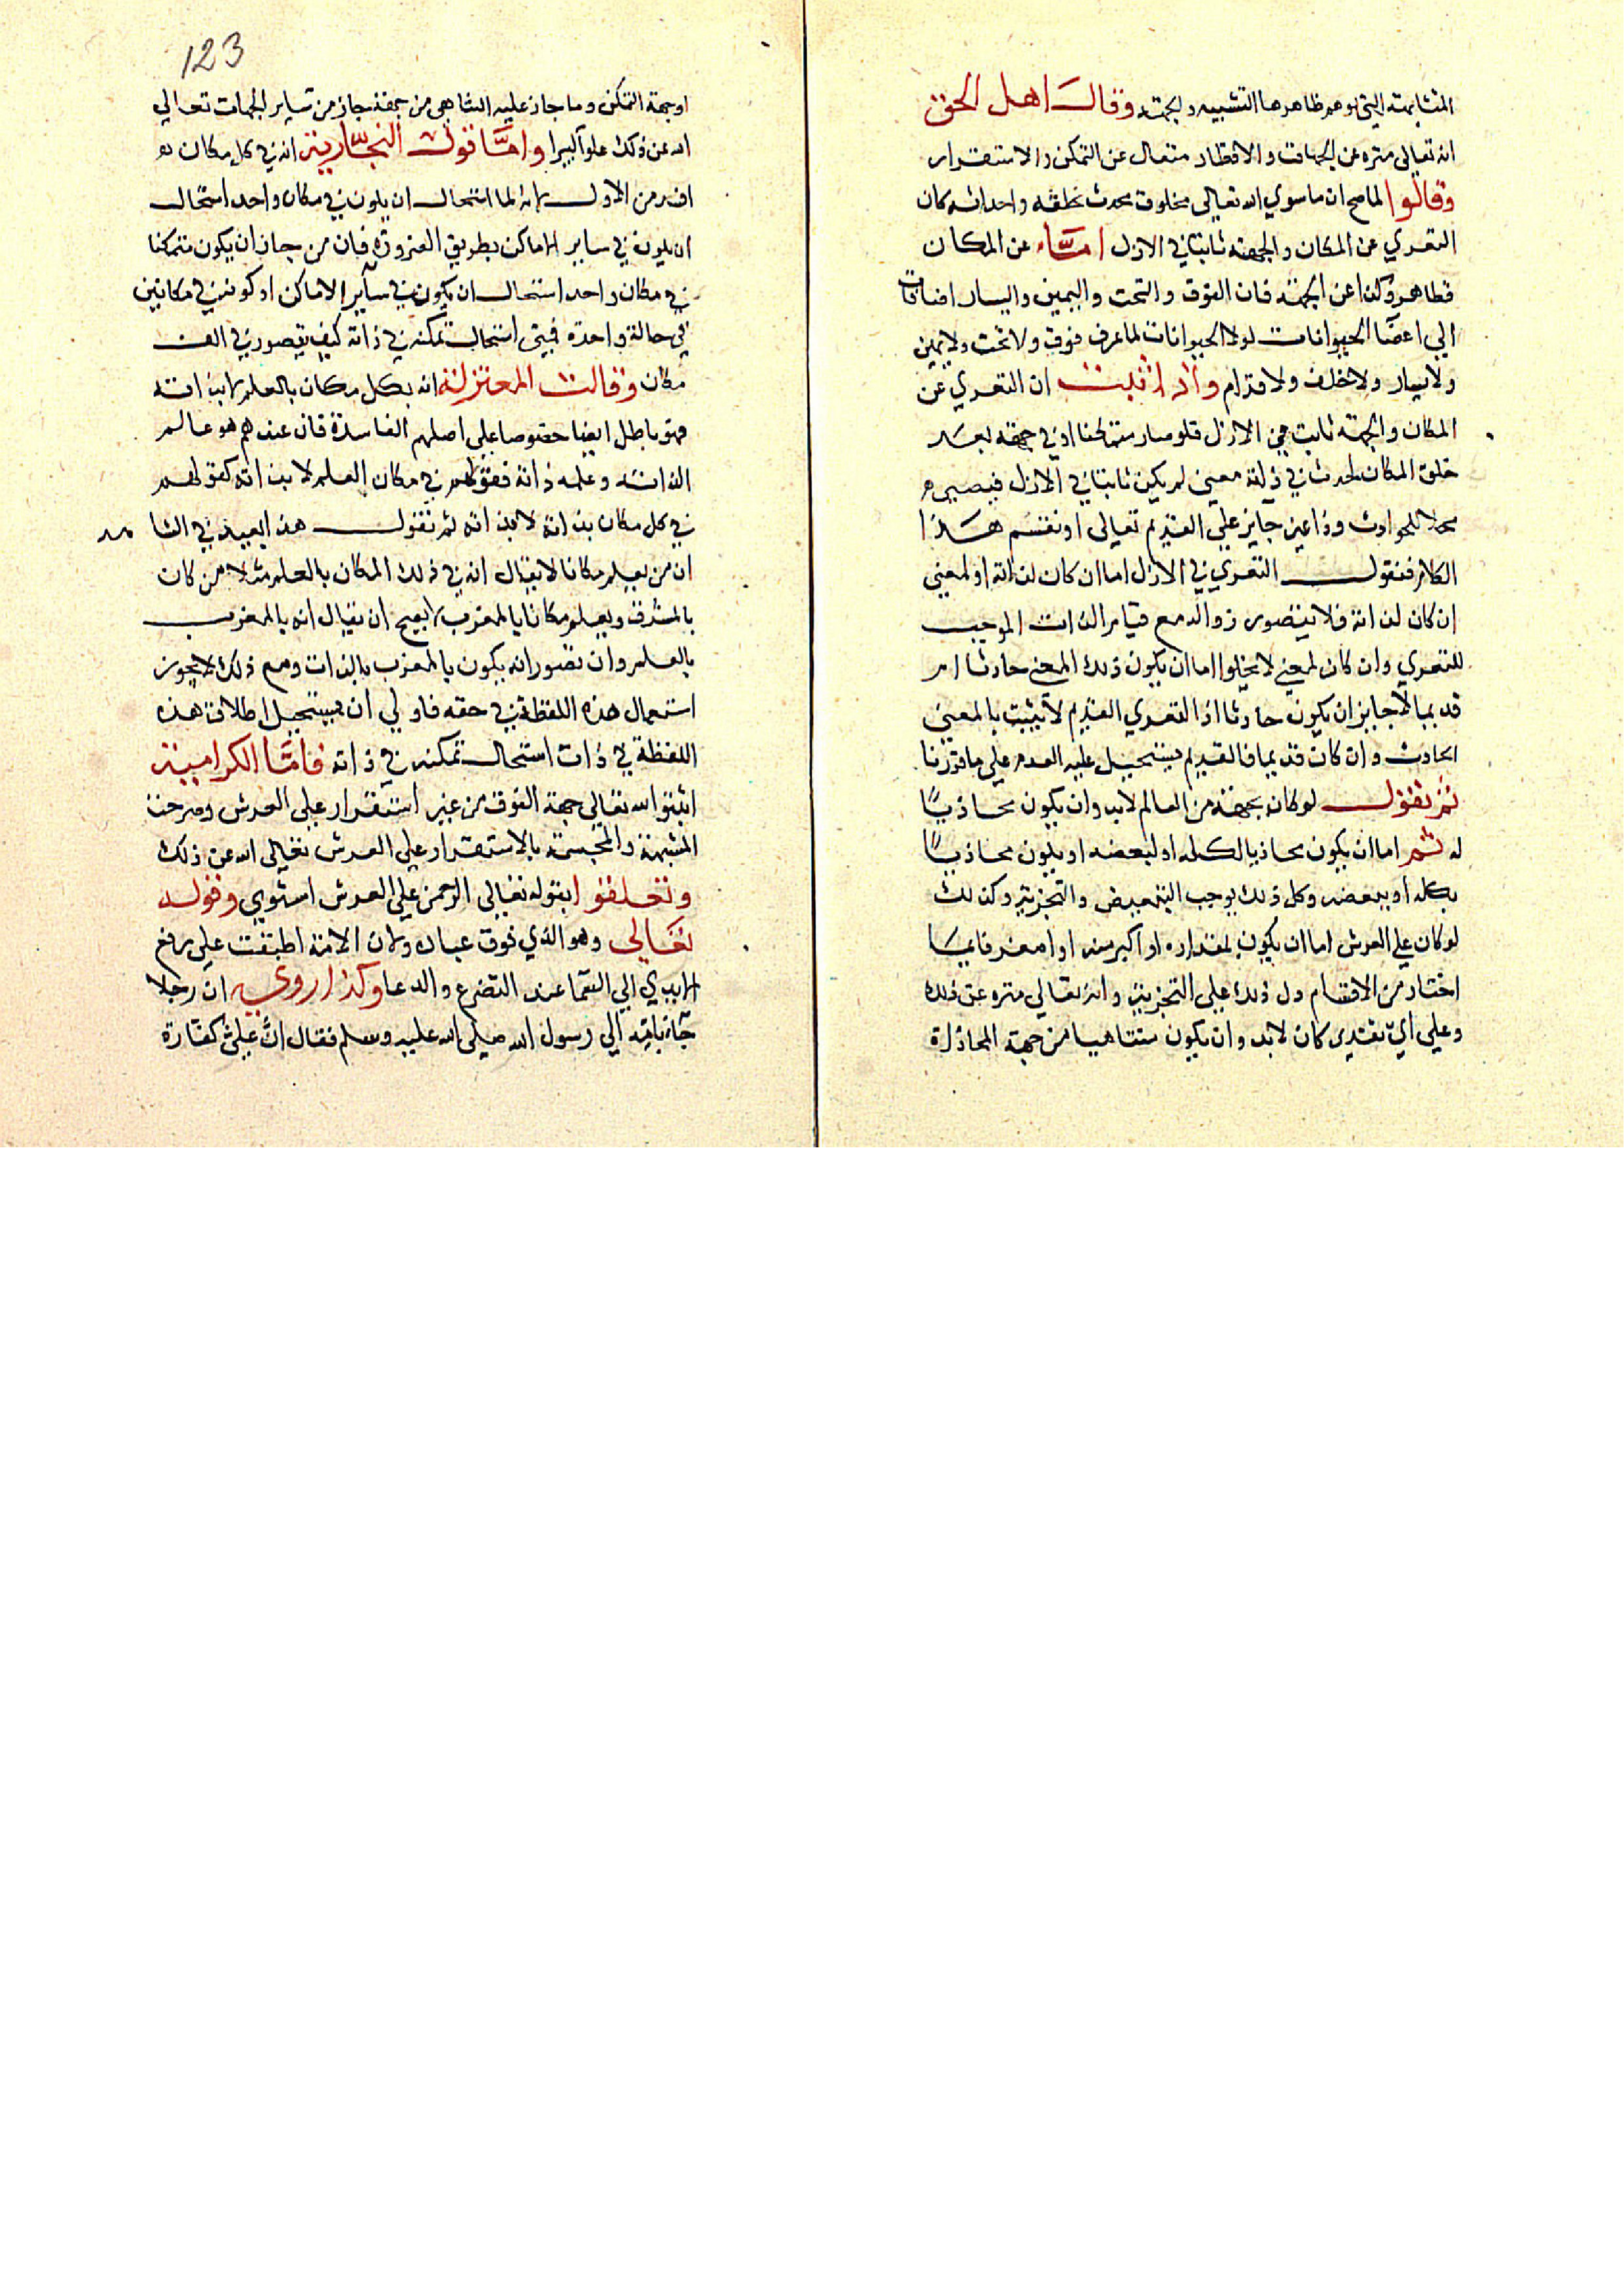 المتشابهة التي يوهم ظاهرها التشبيه والجهة وقال اهل الحق
انه تعالى منزه عن الجهات والاقطار متعال عن التمكن والاستقرار
وقالوا لما صح ان ما سوي الله تعالى مخلوق محدث بخلقه واحداثه كان
التعري عن المكان والجهة ثابتا في الازل اما عن المكان
فظاهر وكذا عن الجهة فان الفوق والتحت واليمين واليسار اضافات
الي اعضا الحيوانات لولا الحيوانات لما عرف فوق ولا تحت ولا يمين
ولا يسار ولا خلف ولا قدام واذا ثبت ان التعري عن
المكان والجهة ثابت في الازل فلو صار متمكنا او في جهة بعد
خلق المكان لحدث في ذاته معنى لم يكن ثابتا في الازل فيصير
محلا للحوادث وذا غير جايز علي القديم تعالى او نقسم هذا
الكلام فنقول التعري في الازل اما ان كان لذاته او لمعنى
ان كان لذاته فلا يتصور زواله مع قيام الذات الموجب
للتعري وان كان لمعني لا يخلوا اما ان يكون ذلك المعنى حادثا ام
قديما لا جايز ان يكون حادثا اذ التعري القديم لا يثبت بالمعنى
الحادث وان كان قديما فالقديم يستحيل عليه العدم علي ما قررنا
ثم نقول لو كان بجهة من العالم لابد وان يكون محاذيًا
له ثم اما ان يكون محاذيا لكله او لبعضه او يكون محاذيًا
بكله او ببعضه وكل ذلك يوجب التبعيض والتجزية وكذلك
لو كان علي العرش اما ان يكون بمقداره او اكبر منه او اصغر فايما
اختار من الاقسام دل ذلك علي التجزية وانه تعالي منزه عن ذلك
وعلي اي تقدير كان لابد وان يكون متناهيا من جهة المحاذاة
123
او جهة التمكن وما جاز عليه التناهي من جهة جاز من ساير الجهات تعالي
الله عن ذلك علوا كبيرا واما قول النجارية انه في كل مكان
افسد من الاول لانه لما استحال ان يكون في مكان واحد استحال
ان يكون في ساير الاماكن بطريق الضرورة فان من جاز ان يكون متمكنا
في مكان واحد استحال ان يكون في ساير الاماكن او كونه في مكانين
في حالة واحدة فمتى استحال تمكنه في ذاته كيف يتصور في الف
مكان وقالت المعتزلة انه بكل مكان بالعلم لا بذاته
فهو باطل ايضا خصوصا علي اصلهم الفاسدة فان عندهم هو عالم
لذاته وعلمه ذاته فقولهم في مكان العلم لا بذاته كقولهم
في كل مكان بذاته لا بذاته ثم نقول هذا بعيد في الشا
ان من يعلم مكانا لا يقال انه في ذلك المكان بالعلم مثلا من كان
بالمشرق ويعلم مكانا بالمغرب لا يصح ان يقال انه بالمغرب
بالعلم وان تصور انه يكون بالمغرب بالذات ومع ذلك لا يجوز
استعمال هذه اللفظة في حقه فاولي ان يستحيل اطلاق هذه
اللفظة في ذات استحال تمكنه في ذاته فاما الكرامية
اثبتوا لله تعالي جهة الفوق من غير استقرار علي العرش وصرحت
المشبهة والمجسمة بالاستقرار علي العرش تعالي الله عن ذلك
وتعلقوا بقوله تعالى الرحمن علي العرش استوي وقوله
تعالي وهو الذي فوق عباده ولان الامة اطبقت علي رفع
الايدي الي السما عند التضرع والدعا وكذا روي ان رجلا
جا بامة الي رسول الله صلي الله عليه وسلم فقال ان علي كفارة